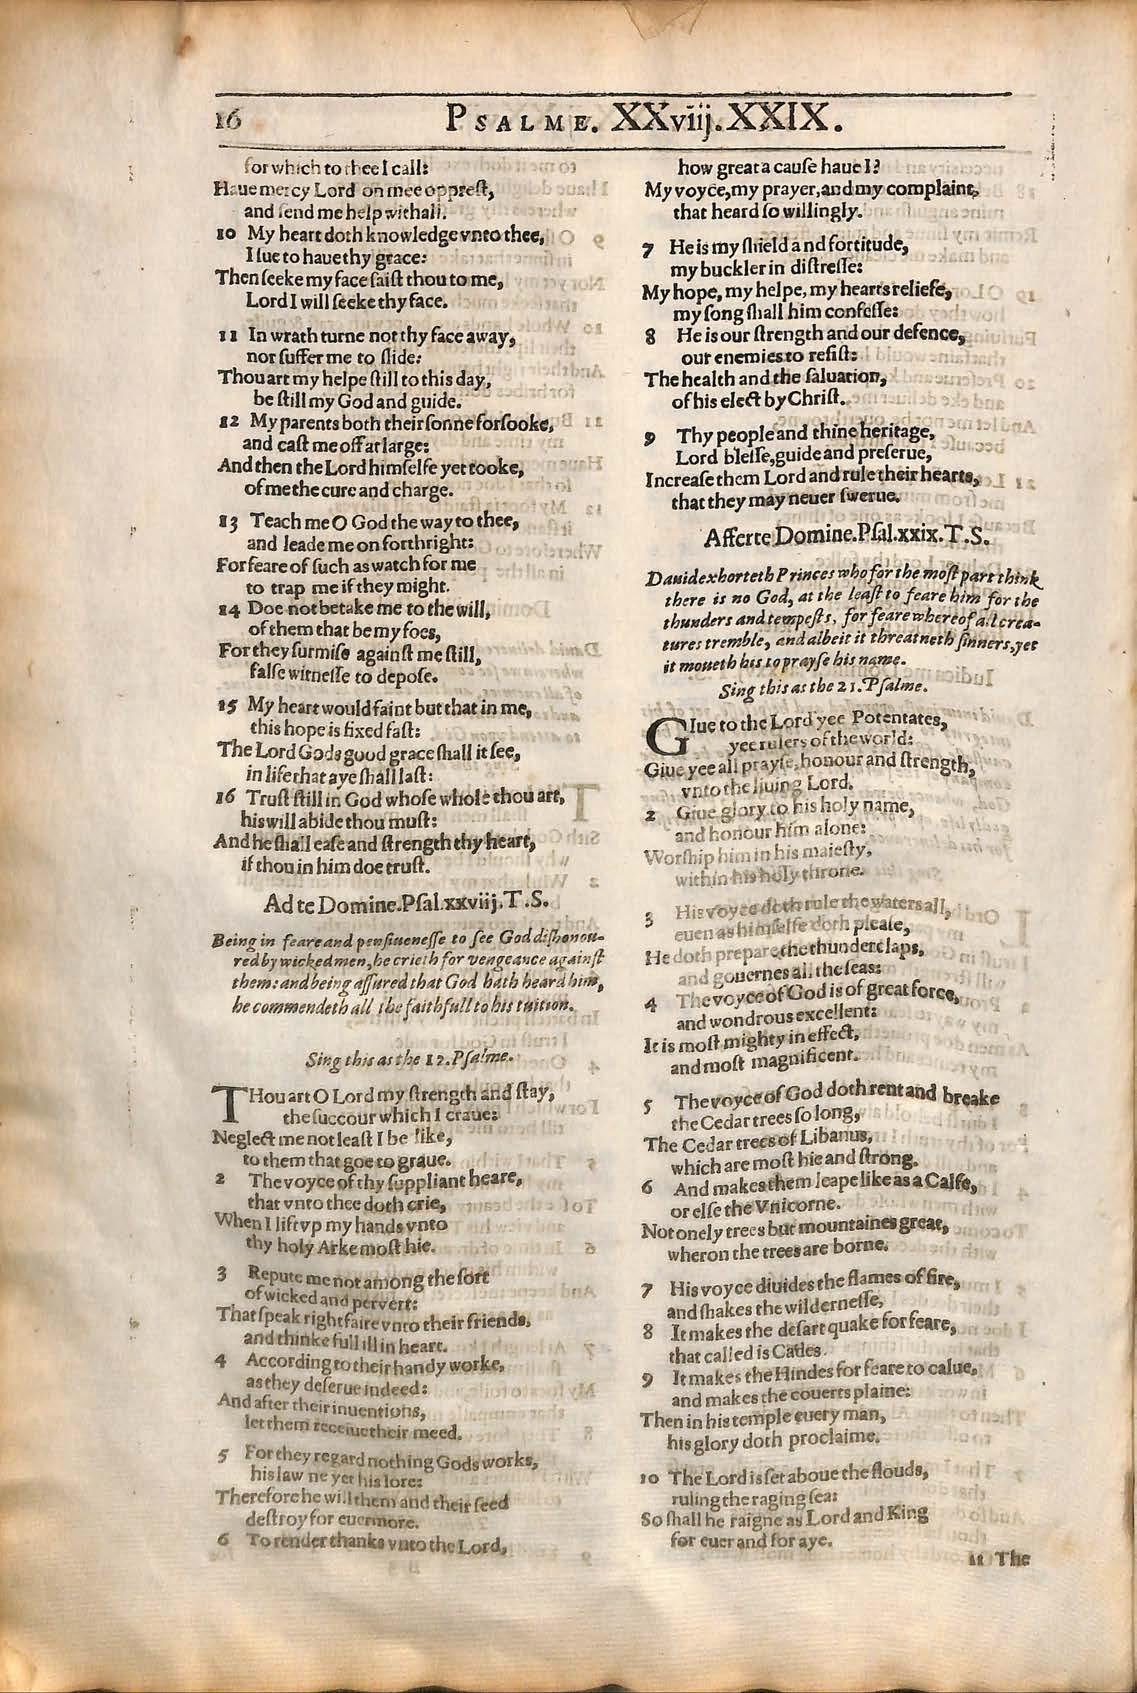 16 PSALME. XXviij. XXIX.
for which to thee I call:
Haue mercy Lord on mee opprest,
and send me help withall.
10 My heart doth knowledge vnto thee,
I sue to haue thy grace:
Then seeke my face saist thou to me,
Lord I will seeke thy face.
11 In wrath turne not thy face away,
nor suffer me to slide:
Thou art my helpe still to this day,
be still my God and guide.
12 My parents both their sonne forsooke,
and cast me off at large:
And then the Lord himselfe yet tooke,
of me the cure and charge.
13 Teach me O God the way to thee,
and leade me on forthright:
For feare of such as watch for me
to trap me if they might.
14 Doe not betake me to the will,
of them that be my foes,
For they surmise against me still,
false witnesse to depose.
15 My heart would faint but that in me,
this hope is fixed fast:
The Lord Gods good grace shall it see,
in life that aye shall last:
16 Trust still in God whose whole thou art,
his will abide thou must:
And he shall ease and strength thy heart,
if thou in him doe trust.
Ad te Domine. Psal. xxviij. T. S.
Being in feare and pensiuenesse to see God dishonou-
red by wicked men, he crieth for vengeance against
them: and being assured that God hath heard him,
he commendeth all the faithfull to his tuition.
Sing this as the 12. Psalme.
THou art O Lord my strength and stay,
the succour which I craue:
Neglect me not least I be like,
to them that goe to graue.
2 The voyce of thy suppliant heare,
that vnto thee doth crie,
When I lift vp my hands vnto
thy holy Arke most hie.
3 Repute me not among the sort
of wicked and pervert:
That speak right faire vnto their friends,
and thinke full ill in heart.
4 According to their handy worke,
as they deserue indeed:
And after their inuentions,
let them receiue their meed.
5 For they regard nothing Gods works,
his law ne yet his lore:
Therefore he will them and their seed
destroy for euermore.
6 To render thanks vnto the Lord,
how great a cause haue I?
My voyce, my prayer, and my complaint,
that heard so willingly.
7 He is my shield and fortitude,
my buckler in distresse:
My hope, my helpe, my hearts reliefe,
my song shall him confesse:
8 He is our strength and our defence,
our enemies to resist:
The health and the saluation,
of his elect by Christ.
9 Thy people and thine heritage,
Lord blesse, guide and preserue,
Increase them Lord and rule their hearts,
that they may neuer swerue.
Afferte Domine. Psal. xxix. T. S.
Dauid exhorteth Princes who for the most part think
there is no God, at the least to feare him for the
thunders and tempests, for feare whereof all crea-
tures tremble, and albeit it threatneth sinners, yet
it moueth his to prayse his name.
Sing this as the 21. Psalme.
GIue to the Lord yee Potentates,
yee rulers of the world:
Giue yee all prayse, honour and strength,
vnto the liuing Lord.
2 Giue glory to his holy name,
and honour him alone:
Worship him in his maiesty,
within his holy throne.
3 His voyce doth rule the waters all,
euen as himselfe doth please,
He doth prepare the thunderclaps,
and gouernes all the seas:
4 The voyce of God is of great force,
and wondrous excellent:
It is most mighty in effect,
and most magnificent.
5 The voyce of God doth rent and breake
the Cedar trees so long,
The Cedar trees of Libanus,
which are most hie and strong.
6 And makes them leape like as a Calfe,
or else the Vnicorne.
Not onely trees but mountaines great,
wheron the trees are borne.
7 His voyce diuides the flames of fire,
and shakes the wildernesse,
8 It makes the desart quake for feare,
that called is Cades.
9 It makes the Hindes for feare to calue,
and makes the couerts plaine:
Then in his temple euery man,
his glory doth proclaime.
10 The Lord is set aboue the flouds,
ruling the raging sea:
So shall he raigne as Lord and King
for euer and for aye.
11 The